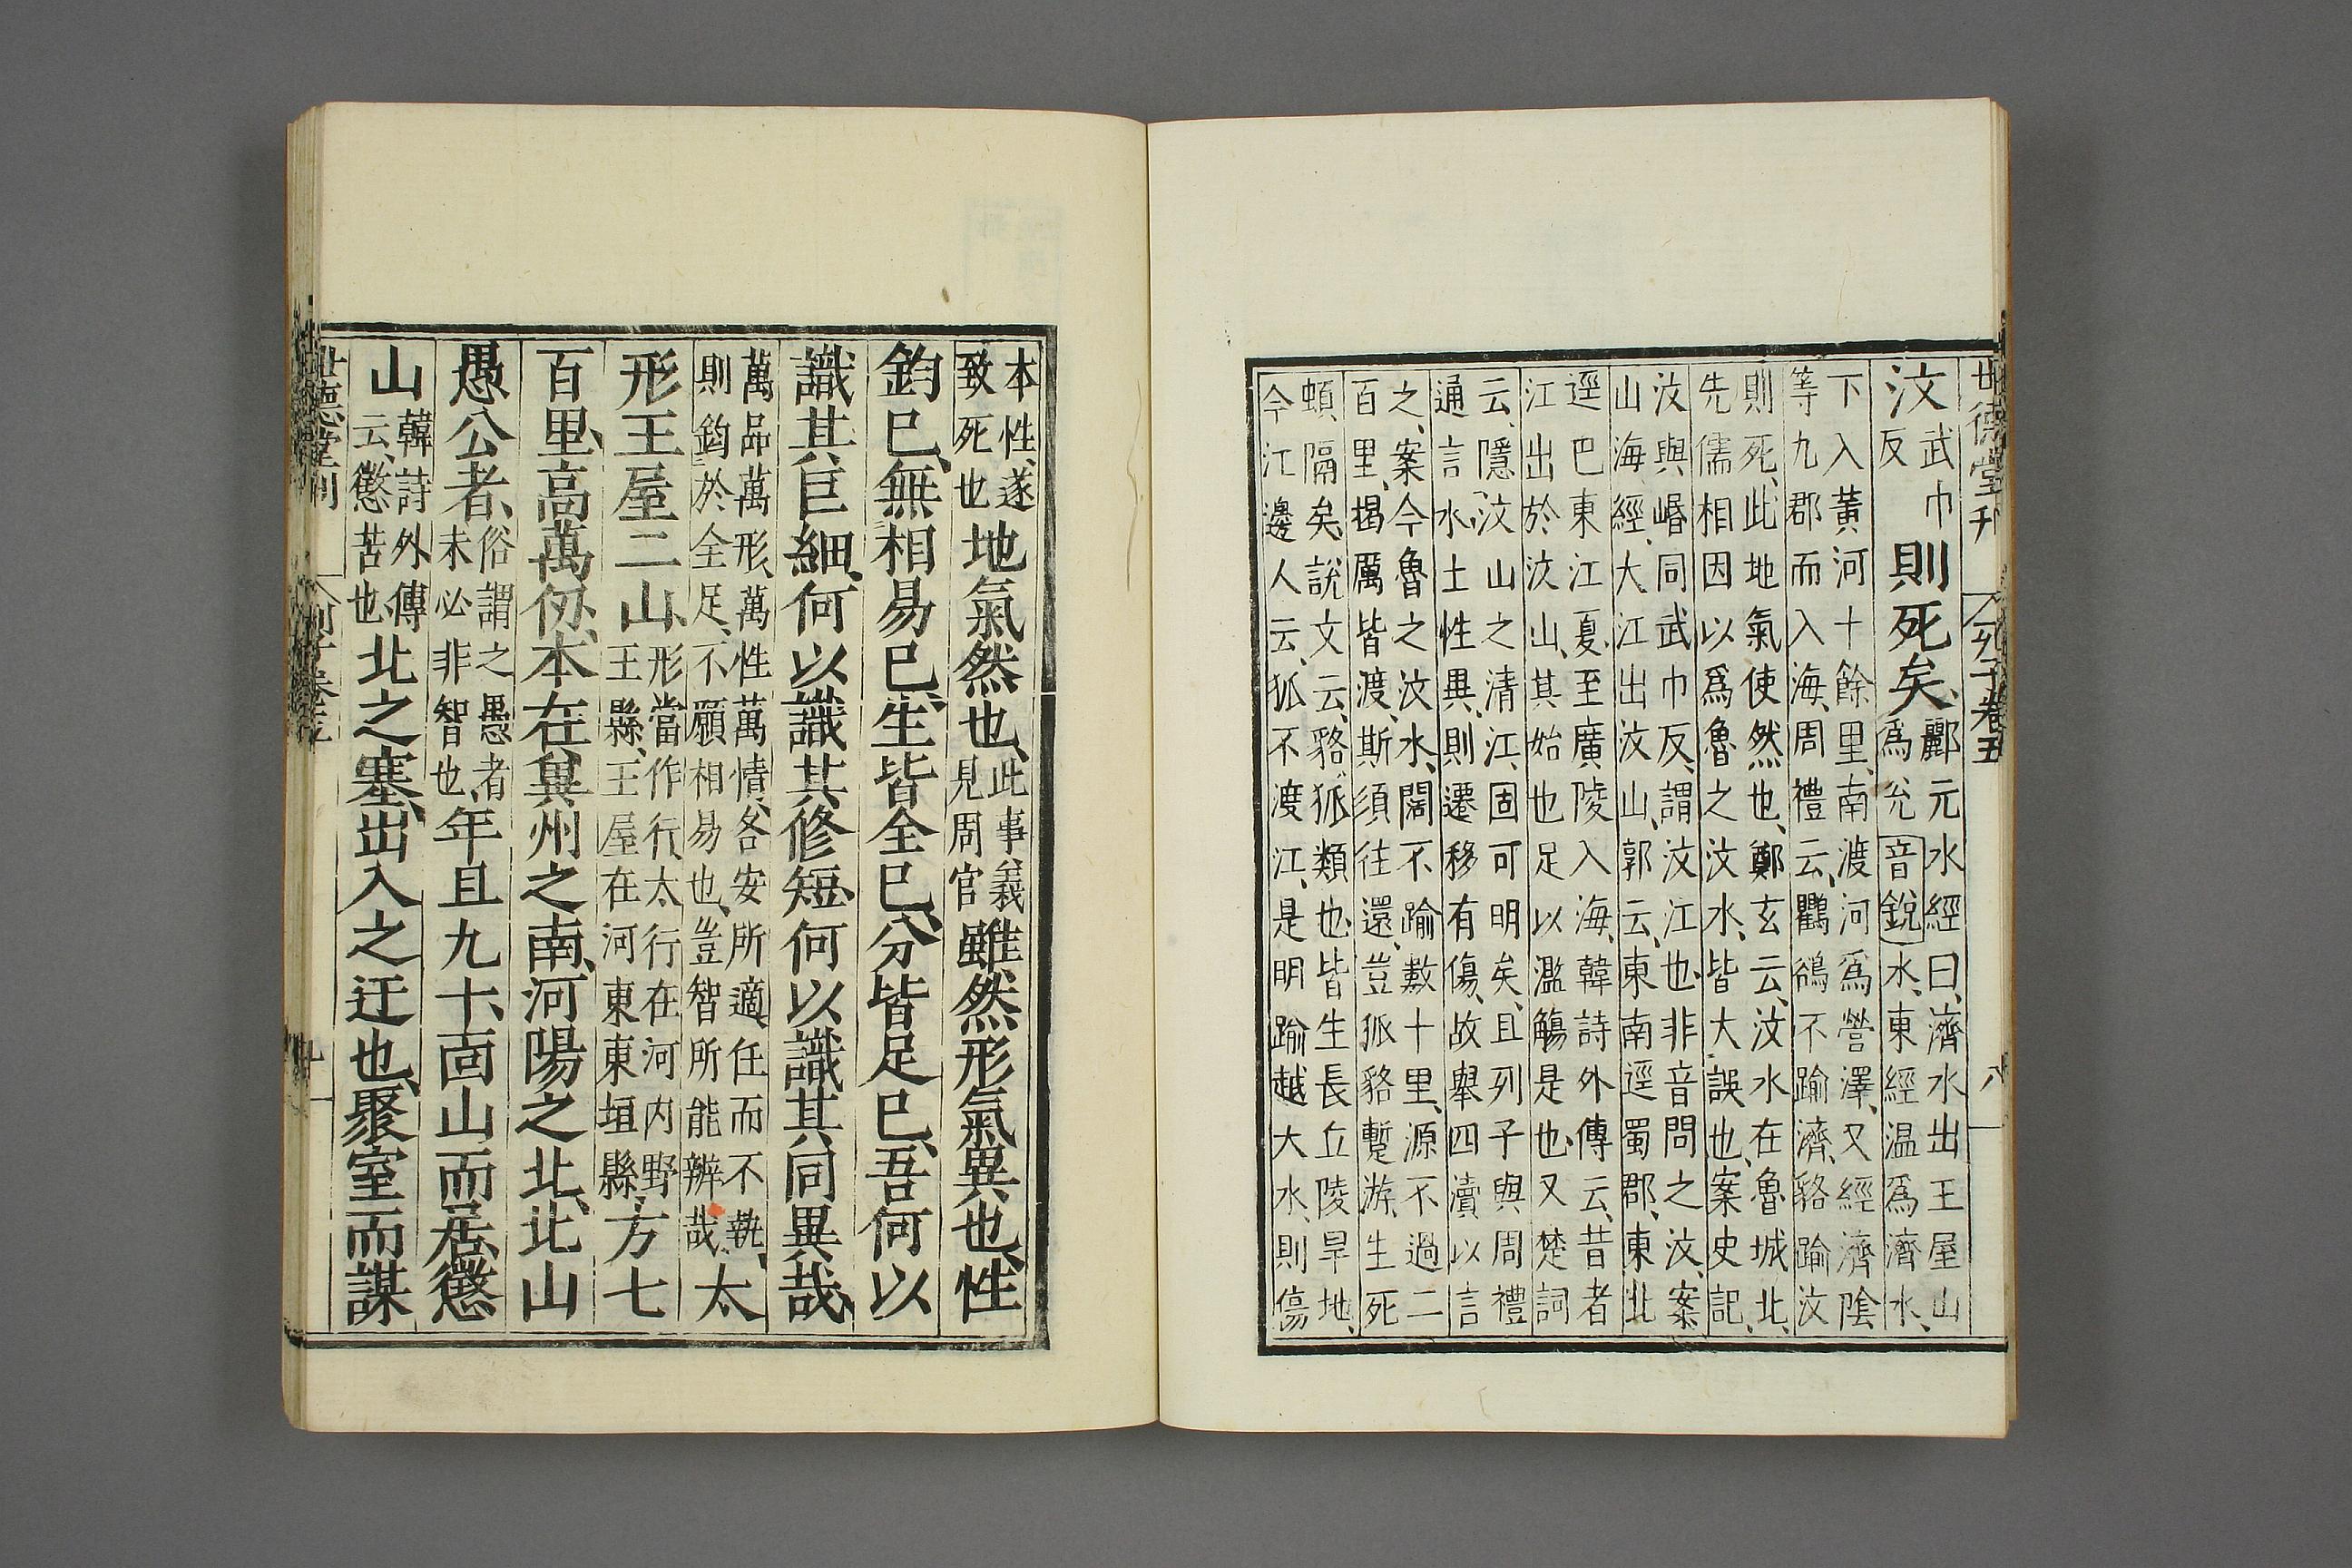 世德堂刊 列子卷五 八
汶武巾反則死矣、酈元水經曰、濟水出王屋山爲兖音銳水、東經温爲濟水、
下入黃河十餘里、南渡河爲營澤、又經濟隂
等九郡而入海、周禮云、鸜鵒不踰濟、貉踰汶
則死、此地氣使然也、鄭玄云、汶水在魯城北、
先儒相因以爲魯之汶水、皆大誤也、案史記、
汶與㟭同武巾反、謂汶江也、非音問之汶、案
山海經、大江出汶山、郭云、東南逕蜀郡、東北
逕巴東江夏、至廣陵入海、韓詩外傳云、昔者
江出於汶山、其始也足以濫觴是也、又楚詞
云、隱汶山之清江、固可明矣、且列子與周禮
通言水土性異、則遷移有傷、故舉四瀆以言
之、案今魯之汶水、闊不踰數十里、源不過二
百里、揭厲皆渡、斯須往還、豈狐貉暫游、生死
頓隔矣、說文云、貉、狐類也、皆生長丘陵旱地、
今江邊人云、狐不渡江、是明踰越大水、則傷
本性、遂致死也地氣然也、此事義見周官雖然形氣異也、性
鈞已、無相易已、生皆全已、分皆足已、吾何以
識其巨細、何以識其修短、何以識其同異哉、
萬品萬形、萬性萬情、各安所適、任而不執、則鈞於全足、不願相易也、豈智所能辨哉、太
形王屋二山、形當作行、太行在河内野王縣、王屋在河東東垣縣、方七
百里、高萬仞、本在兾州之南、河陽之北、北山
愚公者、俗謂之愚者、未必非智也、年且九十、面山而居、懲
山韓詩外傳云、懲苦也、北之塞、出入之迂也、聚室而謀
世德堂刊 列子卷五 九